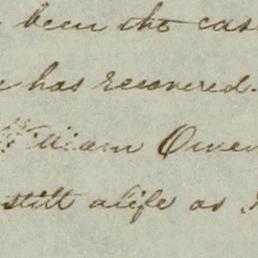 been the cas
has recovered.
William Owen
still alife as